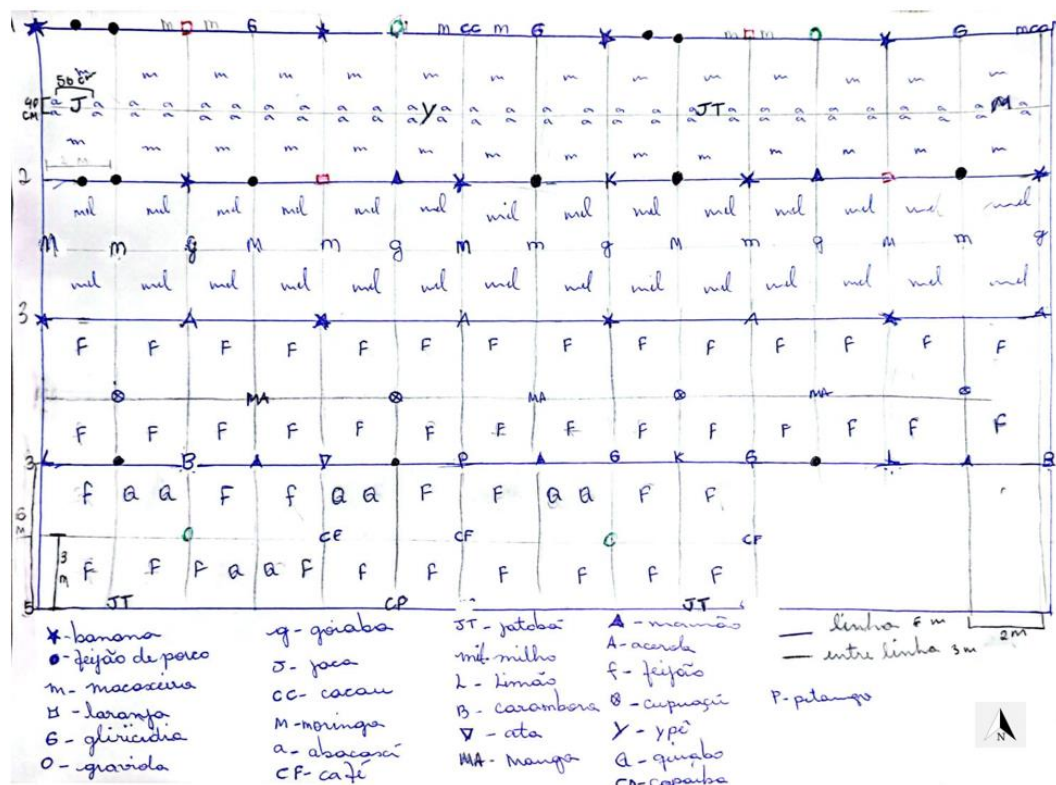 1 m m G m CC m G m m G mCC
m m m m m m m m m m m m m m
50 cm
40 CM
a J a a a a a a a a a a Y a a a a a a a JT a a a a a a a M a
a a a a a a a a a a a a a a a a a a a a a a a a a a
m m m m m m m m m m m m m m
2 M
2 K
mil mil mil mil mil mil mil mil mil mil mil mil mil mil
M m g M m g m m g M m g M m g
mil mil mil mil mil mil mil mil mil mil mil mil mil mil
3 A A A A
F F F F F F F F F F F F F F
MA MA MA
F F F F F F F F F F F F F F
3 L B P G K G L B
F Q Q F f Q Q F F Q Q F F
6 M
CF CF CF
3 m
F F F Q Q F F F F F F F
5 JT CP JT
2M
banana
feijão de porco
m- macaxeira
laranja
G - gliricídia
O - graviola
g- goiaba
J- jaca
CC- cacau
M- moringa
a- abacaxi
CF- café
JT - jatobá
mil- milho
L - Limão
B - carambora
▽ - ata
MA- Manga
▲ - mamão
A- acerola
f- feijão
⊗ - cupuaçú
Y - ypê
Q - quiabo
CP- copaiba
linha 6 m
entre linha 3 m
P- pitanga
N